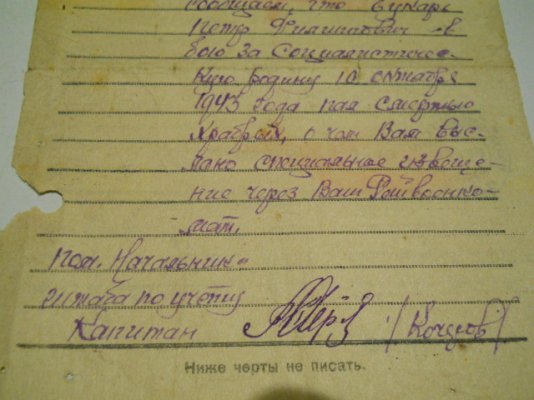 сообщаем, что Бунарь
Петр Филиппович в
бою за Социалистичес-
кую Родину 10 октября
1943 года пал смертью
храбрых, о чем Вам выс-
лано специальное извеще-
ние через Ваш Райвоенко-
мат.
Пом. Начальника
штаба по учёту
Капитан
Ниже черты не писать.